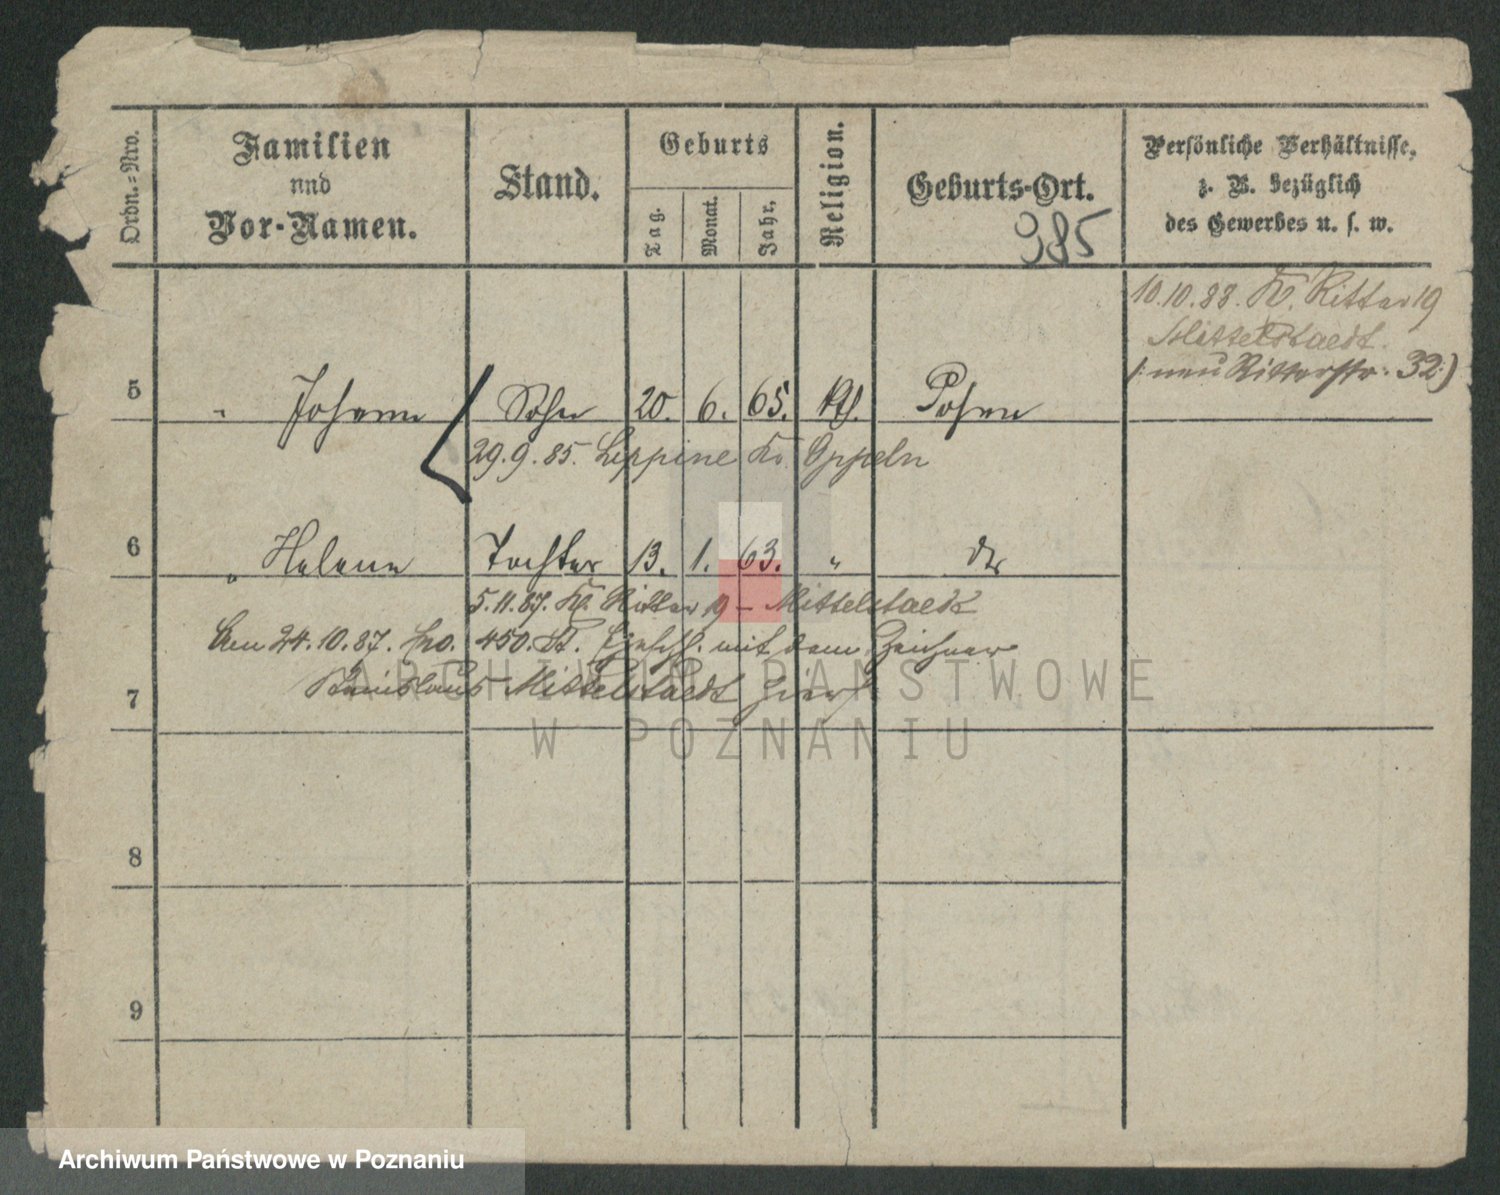 Ordn.-Nro.
Familien
und
Vor-Namen.
Stand.
Geburts
Tag.
Monat.
Jahr.
Religion.
Geburts-Ort.
985
Persönliche Verhältnisse,
z. B. bezüglich
des Gewerbes u. s. w.
10.10.88. Kl. Ritter 19
Mittelstaedt.
(: neu Ritterstr. 32 :)
5 " Johann Sohn 20. 6. 65. Kth. Posen
29.9.85. Leppine Kr. Oppeln
6 " Helene Tochter 13. 1. 63. " do
5.11.87. Kl. Ritter 19 - Mittelstaedt
Am 24.10.87. No. 450. St. mit dem Zeichner
7 Stanislaus Mittelstaedt hier
8
9
ARCHIWUM PAŃSTWOWE
W POZNANIU
Archiwum Państwowe w Poznaniu